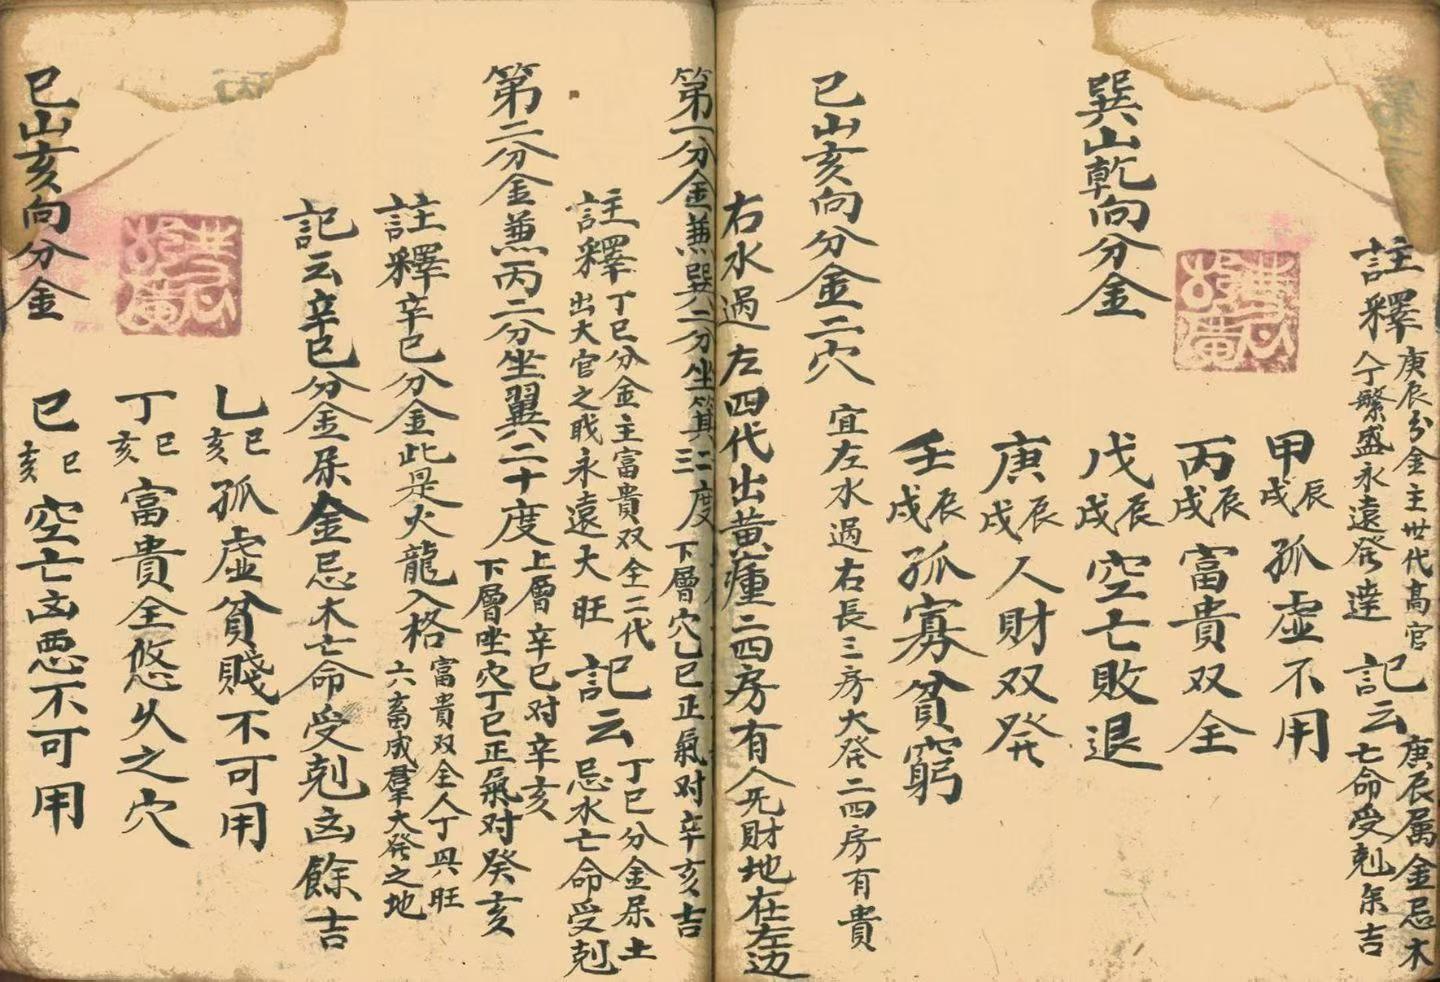 註釋 庚辰分金主世代高官 人丁繁盛永遠発達 記云 庚辰属金忌木 亡命受剋余吉
巽山乾向分金
甲辰戌 孤虛不用
丙辰戌 富貴双全
戊辰戌 空亡敗退
庚辰戌 人財双発
壬辰戌 孤寡貧窮
巳山亥向分金二穴 宜左水過右長三房大発二四房有貴
右水過左四代出黄瘇二四房有人死財地在左边
第一分金兼巽二分坐箕三二度下層穴己巳正氣对辛亥吉
註釋 丁巳分金主富貴双全二代 出大官之戝永遠大旺 記云 丁巳分金屎土 忌水亡命受剋
第二分金兼丙二分坐翼二十度 上層辛巳对辛亥 下層坐穴丁巳正氣对癸亥
註釋辛巳分金此是火龍入格 富貴双全人丁興旺 六畜成羣大発之地
記云辛巳分金屎金忌木亡命受剋凶餘吉
乙巳亥 孤虛貧賤不可用
丁巳亥 富貴全悠久之穴
己巳亥 空亡凶悪不可用
巳山亥向分金